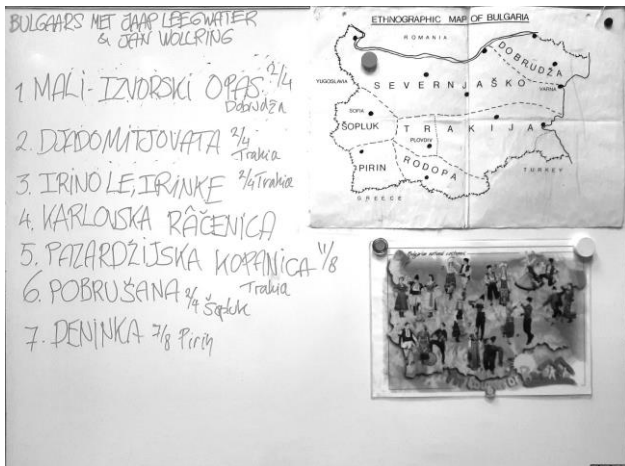 BULGAARS MET JAAP LEEGWATER
& JAN WOLLRING
1 MALI-IZVORSKI OPAS 2/4
Dobrudža
2. DJADOMITJOVATA 2/4
Trakia
3. IRINO LE, IRINKE 2/4 Trakia
4. KARLOVSKA RÂČENICA
5. PAZARDŽIJSKA KOPANICA 11/8
Trakia
6. POBRUŠANA 2/4 Šopluk
7. DENINKA 7/8 Pirin
ETHNOGRAPHIC MAP OF BULGARIA
ROMANIA
DOBRUDŽA
YUGOSLAVIA
SEVERNJAŠKO
VARNA
SOFIA
ŠOPLUK
TRAKIJA
PLOVDIV
PIRIN
RODOPA
TURKEY
GREECE
Bulgarian national costumes